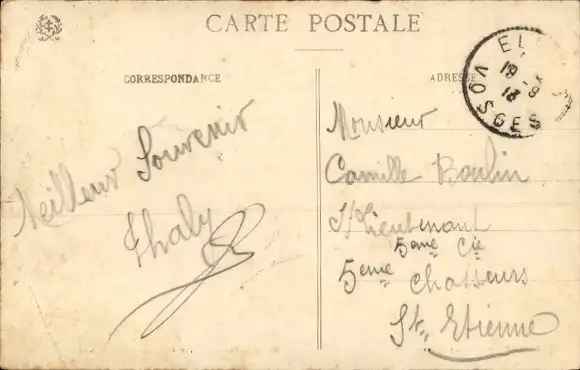 CARTE POSTALE
CORRESPONDANCE
ADRESSE
Meilleur Souvenir
Thaly
Monsieur
Camille Boulin
S/Lieutenant
5eme Cie
5eme Chasseurs
St. Etienne
EL
18 - 9
13
VOSGES